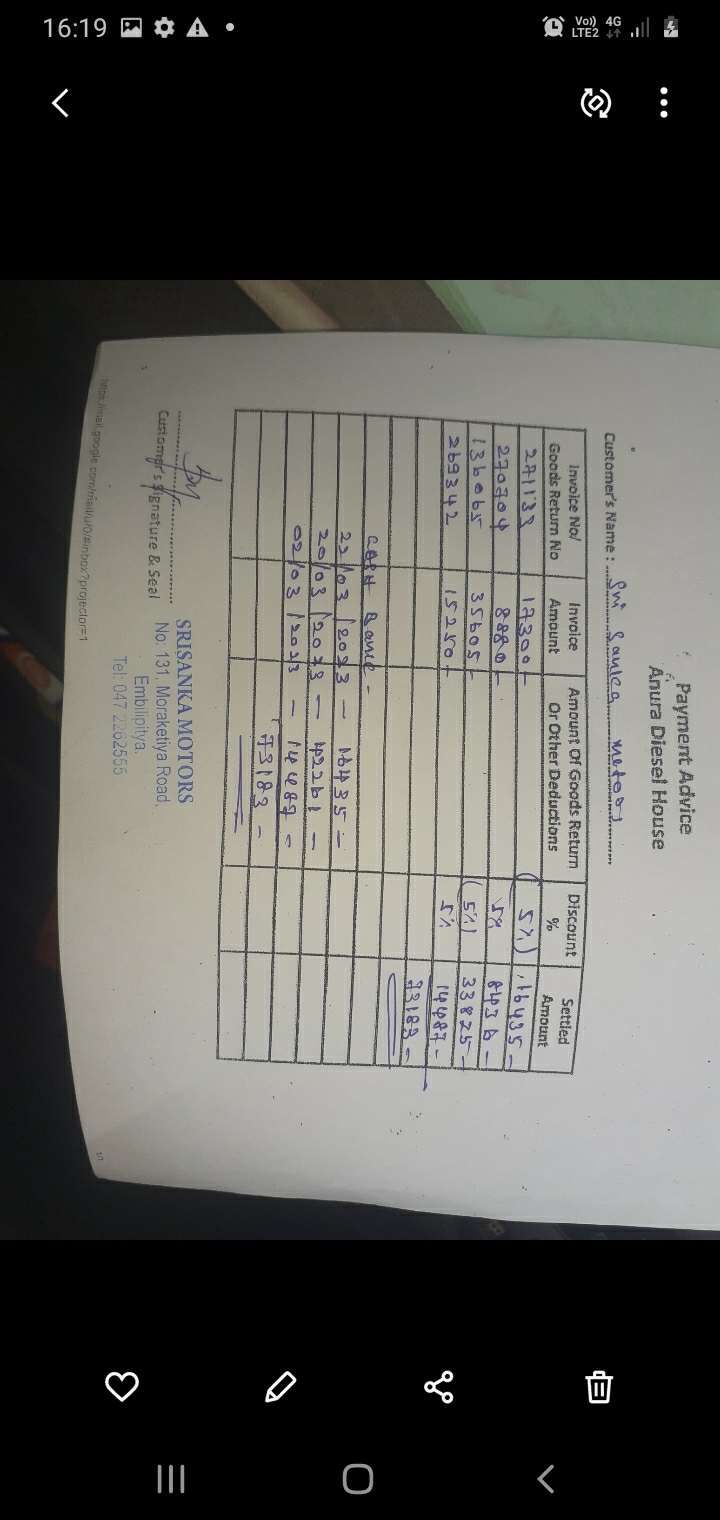 16:19
Vo)) 4G
LTE2
Payment Advice
Anura Diesel House
Customer's Name : Sri Sanka Motors
Invoice No/ Goods Return No | Invoice Amount | Amount Of Goods Return Or Other Deductions | Discount % | Settled Amount
271133 17300 - (5%) 16435 -
270704 8880 - 5% 8436 -
136065 35605 - (5%) 33825 -
269342 15250 - 5% 14487 -
73183 -
CASH
22/03/2023 - 16435 -
20/03/2023 - 42261 -
02/03/2023 - 14487 -
73183 -
Customer's Signature & Seal
SRISANKA MOTORS
No: 131, Moraketiya Road,
Embilipitya.
Tel: 047 2262555
https://mail.google.com/mail/u/0/#inbox?projector=1
1/1